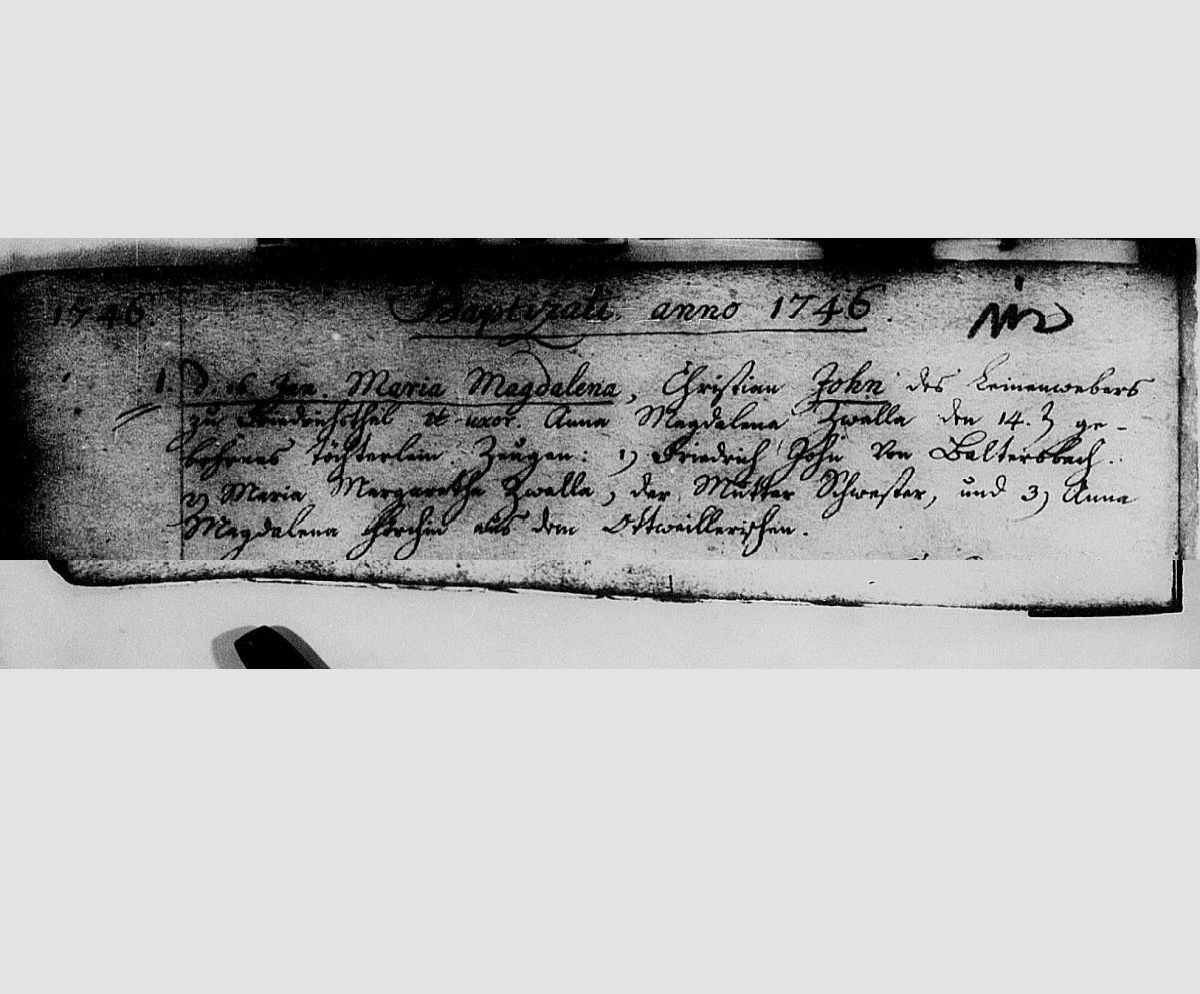 1746. Baptizati anno 1746.
1. D. 16. Jan. Maria Magdalena, Christian John des Leinenwebers
zu Friedrichsthal et uxor. Anna Magdalena Zwalla den 14. ge-
bohrnes Töchterlein. Zeugen: 1) Friedrich John von Baltersbach.
2) Maria Margaretha Zwalla, der Mutter Schwester, und 3) Anna
Magdalena aus dem Ottweillerischen.